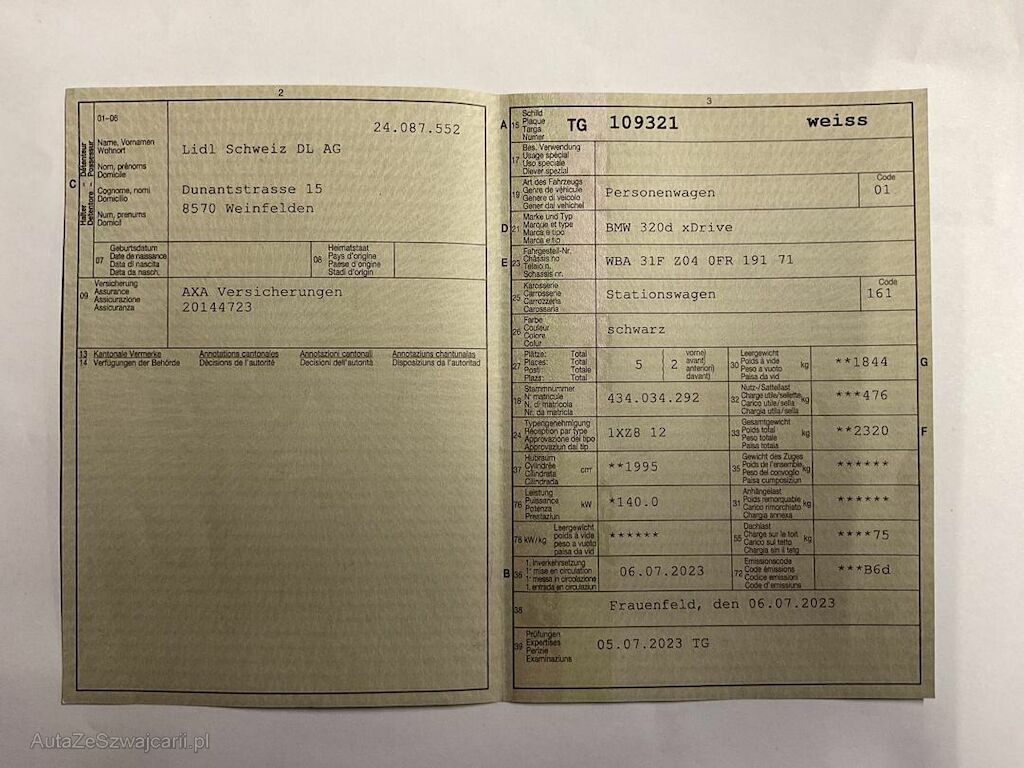 2
01-06
24.087.552
C
Halter – Détenteur
Detentore – Possessur
Name, Vornamen
Wohnort
Nom, prénoms
Domicile
Cognome, nomi
Domicilio
Num, prenums
Domicil
Lidl Schweiz DL AG
Dunantstrasse 15
8570 Weinfelden
07
Geburtsdatum
Date de naissance
Data di nascita
Data da nasch.
08
Heimatstaat
Pays d'origine
Paese d'origine
Stadi d'origin
09
Versicherung
Assurance
Assicurazione
Assicuranza
AXA Versicherungen
20144723
13 Kantonale Vermerke Annotations cantonales Annotazioni cantonali Annotaziuns chantunalas
14 Verfügungen der Behörde Décisions de l'autorité Decisioni dell'autorità Disposiziuns da l'autoritad
3
A
15
Schild
Plaque
Targa
Numer
TG 109321 weiss
17
Bes. Verwendung
Usage spécial
Uso speciale
Diever spezial
19
Art des Fahrzeugs
Genre de véhicule
Genere di veicolo
Gener dal vehichel
Personenwagen
Code
01
D
21
Marke und Typ
Marque et type
Marca e tipo
Marca e tip
BMW 320d xDrive
E
23
Fahrgestell-Nr.
Châssis no
Telaio n.
Schassis nr.
WBA 31F Z04 0FR 191 71
25
Karosserie
Carrosserie
Carrozzeria
Carossaria
Stationswagen
Code
161
26
Farbe
Couleur
Colore
Colur
schwarz
27
Plätze: Total
Places: Total
Posti: Totale
Plazs: Total
5
2
vorne)
avant)
anteriori)
davant)
30
Leergewicht
Poids à vide
Peso a vuoto
Paisa da vid
kg
**1844
G
18
Stammnummer
N° matricule
N. di matricola
Nr. da matricla
434.034.292
32
Nutz-/Sattellast
Charge utile/sellette
Carico utile/sella
Chargia utila/sella
kg
***476
24
Typengenehmigung
Réception par type
Approvazione del tipo
Approvaziun dal tip
1XZ8 12
33
Gesamtgewicht
Poids total
Peso totale
Paisa totala
kg
**2320
F
37
Hubraum
Cylindrée
Cilindrata
Cilindrada
cm³
**1995
35
Gewicht des Zuges
Poids de l'ensemble
Peso del convoglio
Paisa cumposiziun
kg
******
76
Leistung
Puissance
Potenza
Prestaziun
kW
*140.0
31
Anhängelast
Poids remorquable
Carico rimorchiato
Chargia annexa
kg
******
78 kW/kg
Leergewicht
poids à vide
peso a vuoto
paisa da vid
******
55
Dachlast
Charge sur le toit
Carico sul tetto
Chargia sin il tetg
kg
****75
B
36
1. Inverkehrsetzung
1re mise en circulation
1a messa in circolazione
1. entrada en circulaziun
06.07.2023
72
Emissionscode
Code émissions
Codice emissioni
Code d'emissiuns
***B6d
38
Frauenfeld, den 06.07.2023
39
Prüfungen
Expertises
Perizie
Examinaziuns
05.07.2023 TG
AutaZeSzwajcarii.pl